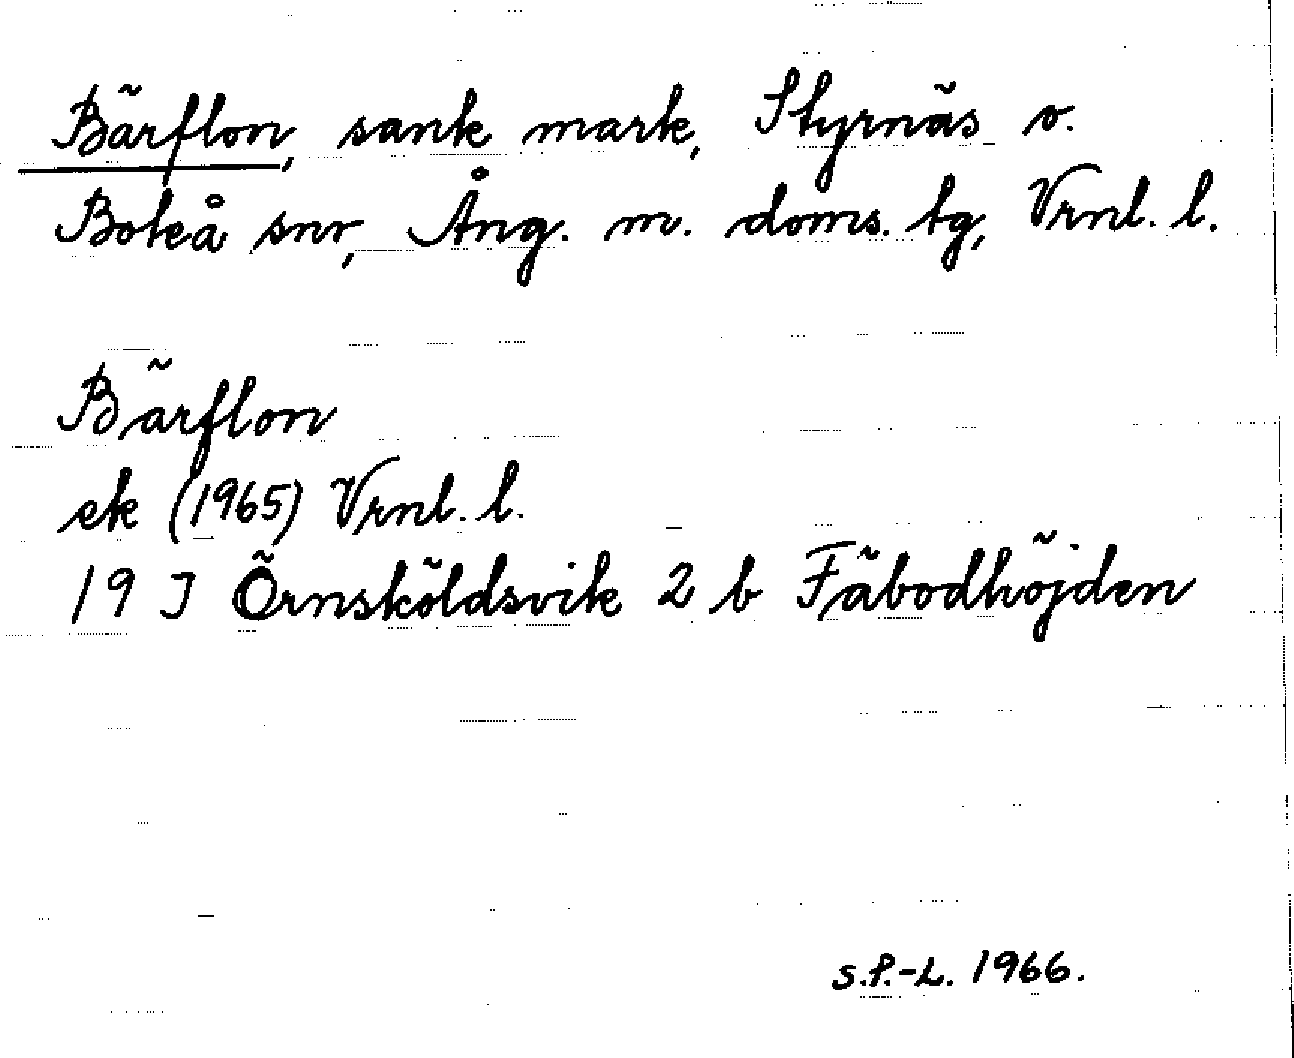 Bärflon, sank mark, Styrnäs o.
Boteå snr, Ång. m. doms. tg, Vrnl. l.
Bärflon
ek (1965) Vrnl. l.
19 J Örnsköldsvik 2 b Fäbodhöjden
S.P.-L. 1966.